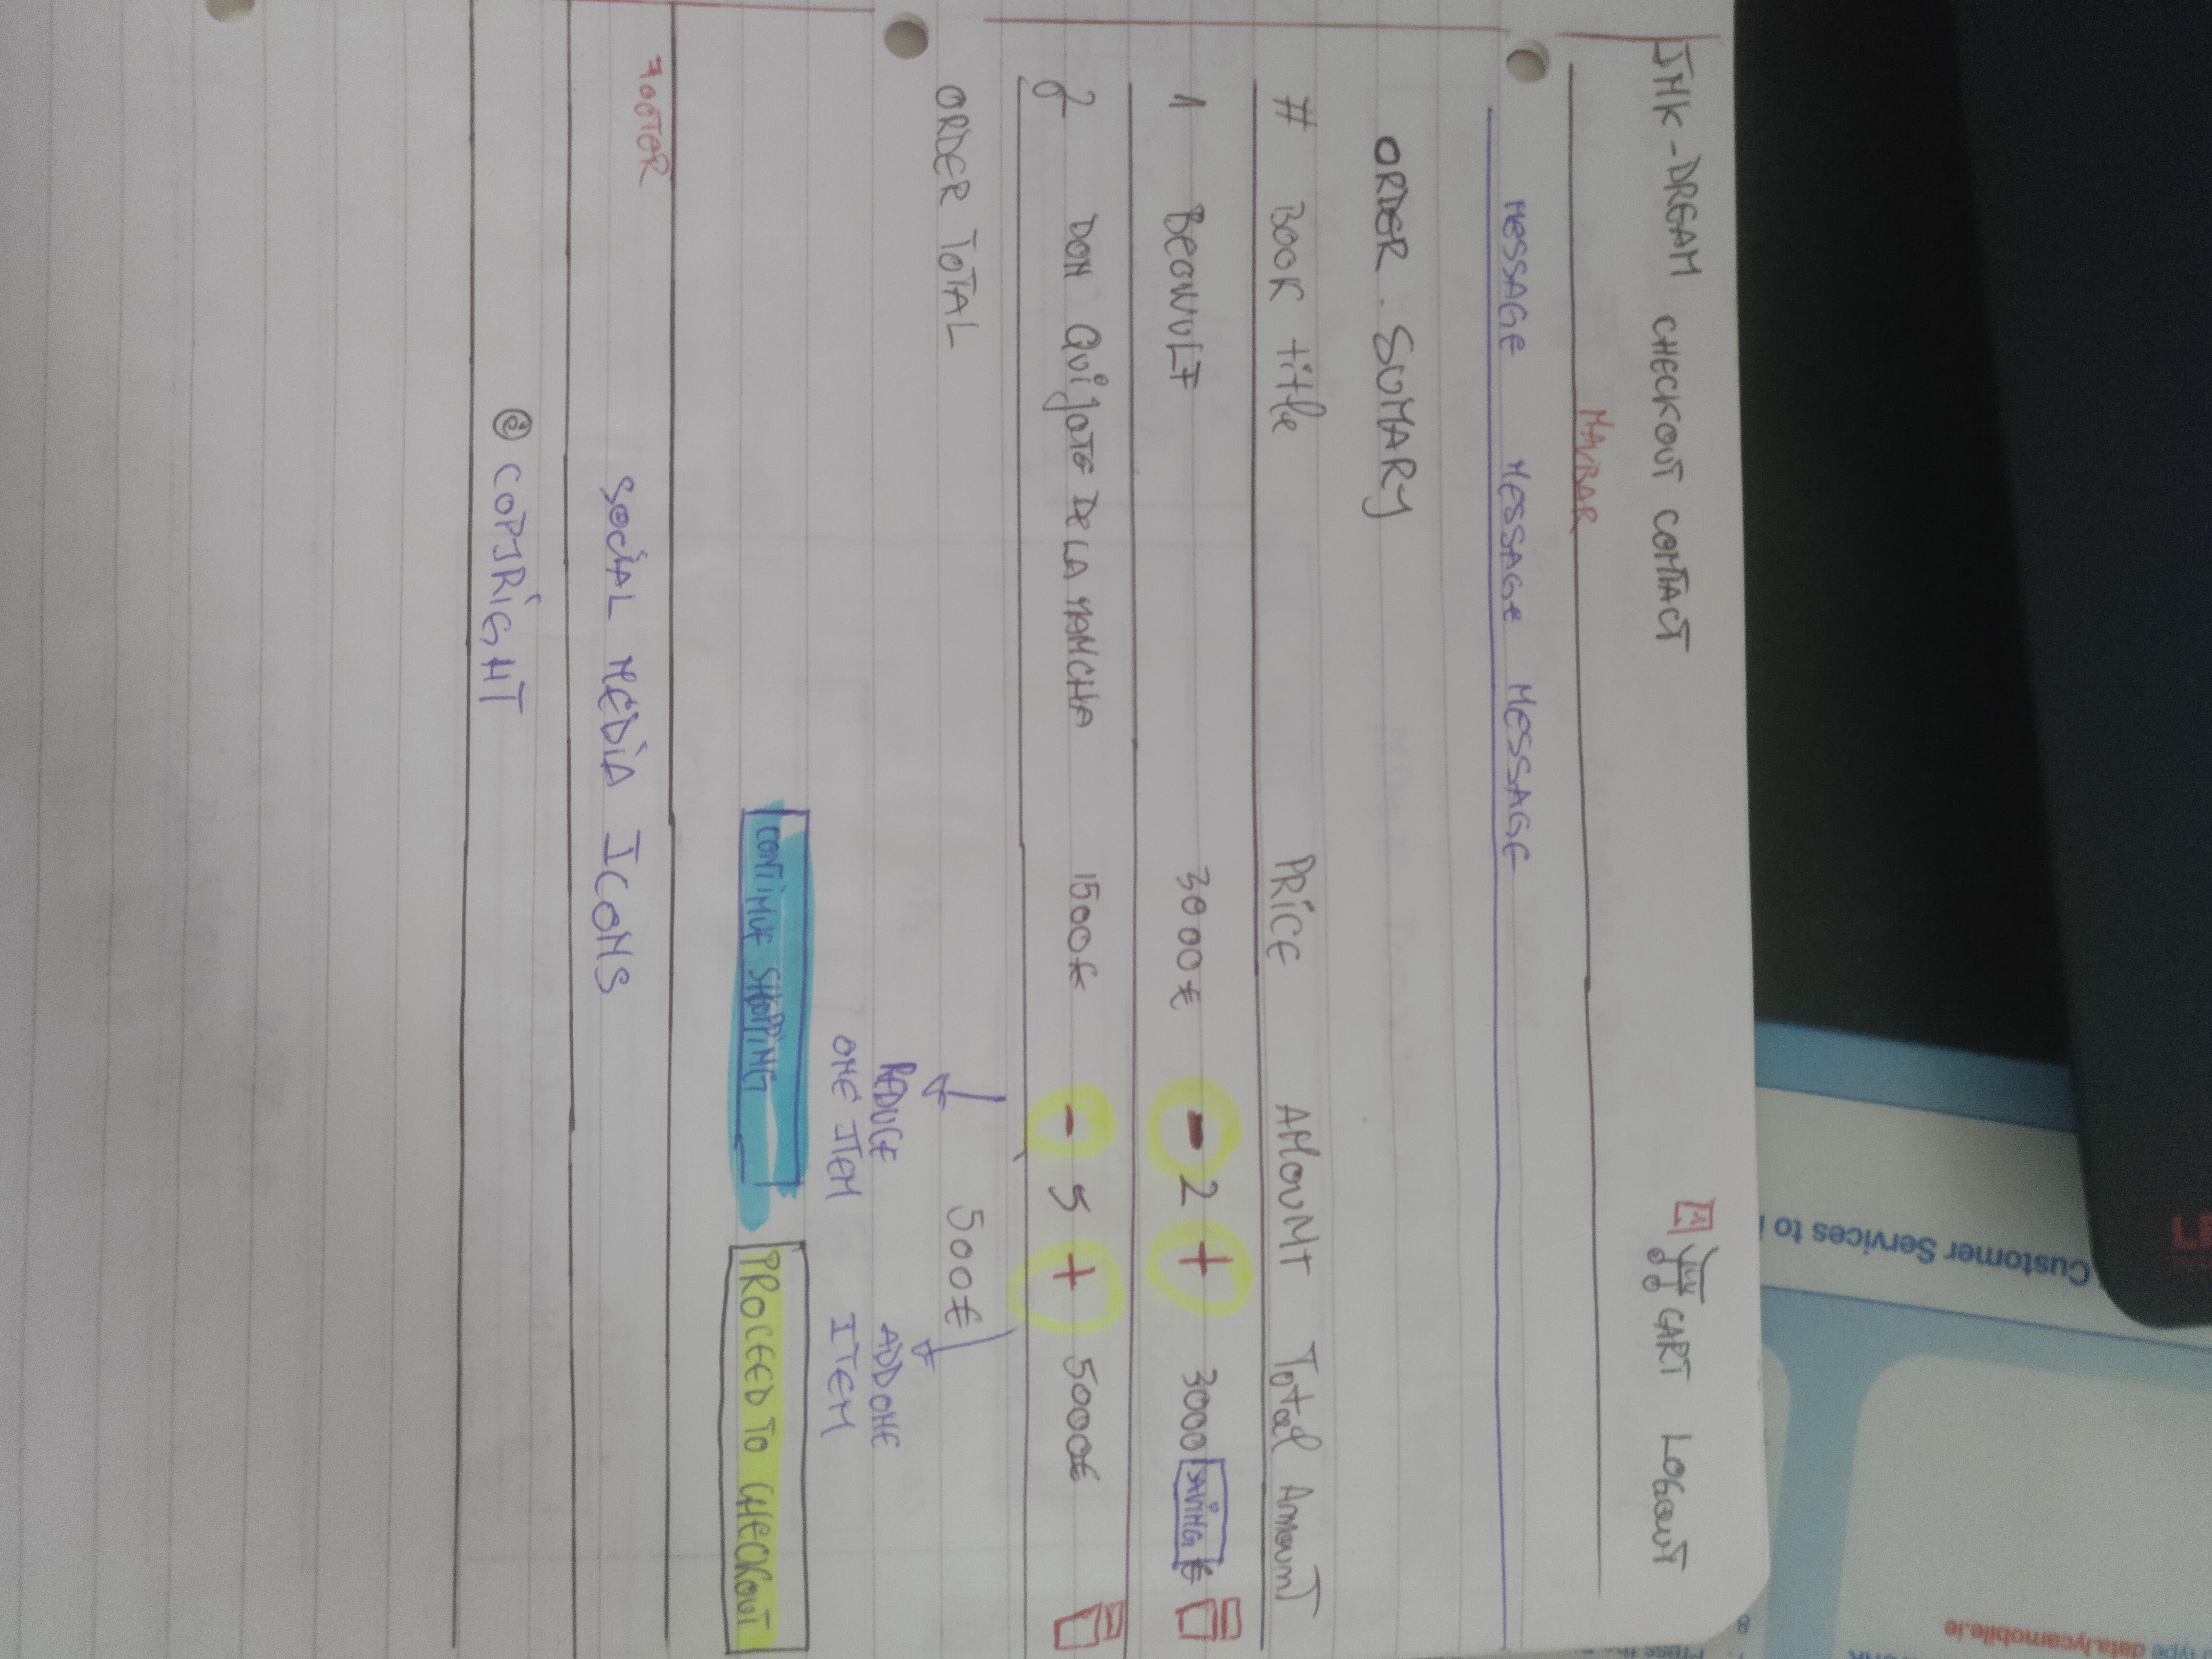 JMK-DREAM CHECKOUT CONTACT 1 CART LOGOUT
NAVBAR
MESSAGE MESSAGE MESSAGE
ORDER SUMARY
# BOOK title PRICE AMOUNT Total Amount
1 BEOWULF 3000€ - 2 + 3000 SAVING €
2 DON QUIJOTE DE LA MANCHA 1500€ - 5 + 5000€
ORDER TOTAL 500€
REDUCE ADD ONE
ONE ITEM ITEM
CONTINUE SHOPPING PROCEED TO CHECKOUT
FOOTER
SOCIAL MEDIA ICONS
© COPJRIGHT
Customer Services to
type data.lycamobile.ie
8